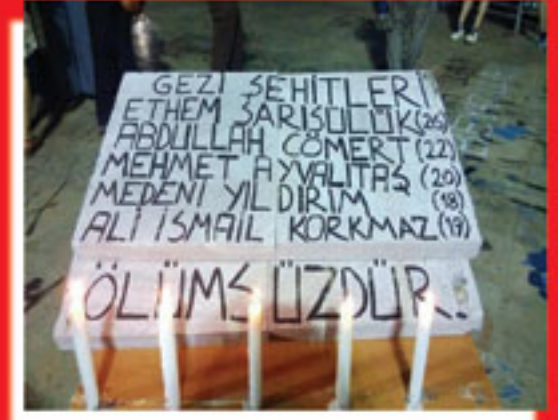 GEZİ ŞEHİTLERİ
ETHEM SARISÜLÜK(26)
ABDULLAH CÖMERT (22)
MEHMET AYVALITAŞ (20)
MEDENİ YILDIRIM (18)
ALİ İSMAİL KORKMAZ(19)
ÖLÜMSÜZDÜR!